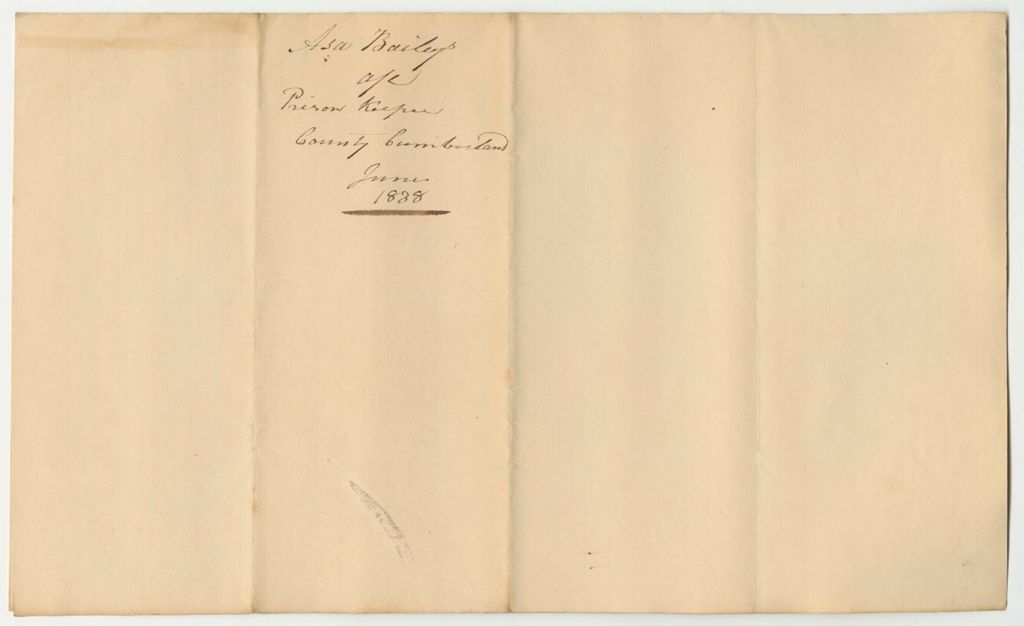 Asa Bailey's
a/c
Prison Keeper
County Cumberland
June
1838